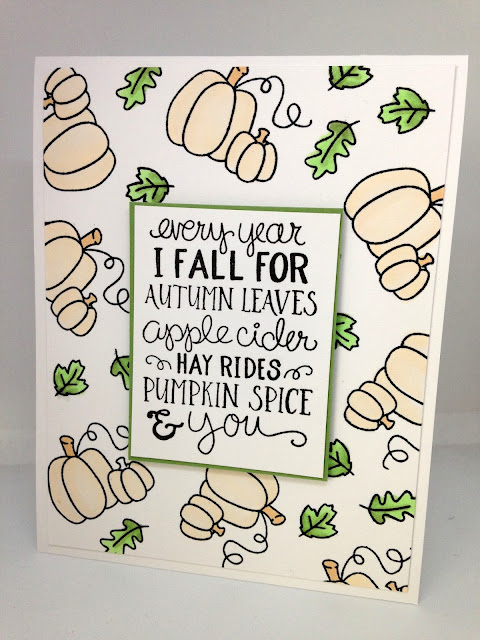 every year
I FALL FOR
AUTUMN LEAVES
apple cider
HAY RIDES
PUMPKIN SPICE
& you